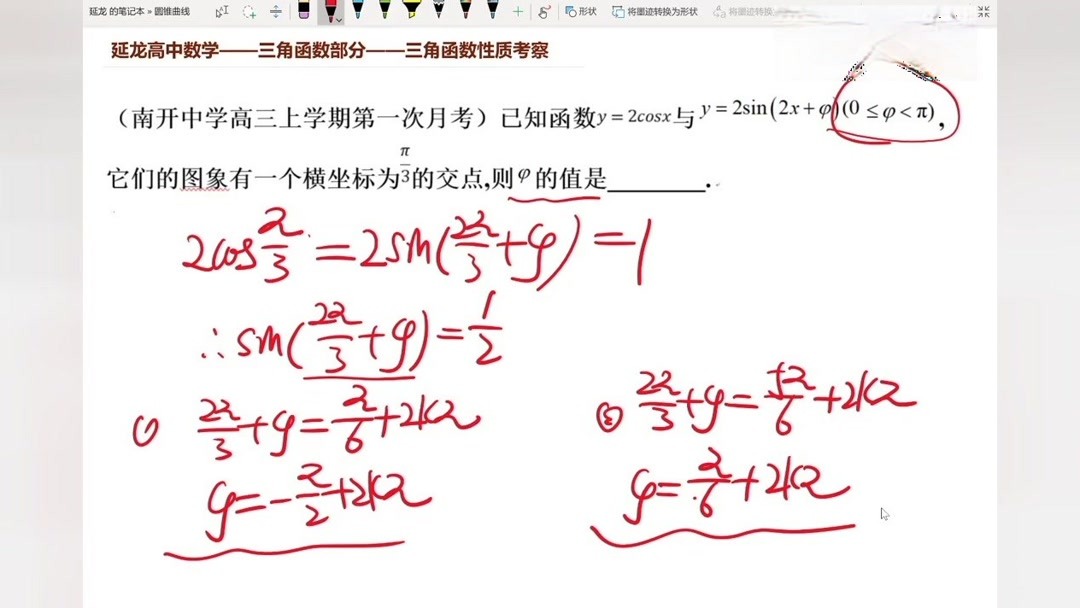 延龙 的笔记本 » 圆锥曲线
形状
将墨迹转换为形状
将墨迹转换
延龙高中数学——三角函数部分——三角函数性质考察
（南开中学高三上学期第一次月考）已知函数y = 2cosx与y = 2sin(2x + φ)(0 ≤ φ < π)，
它们的图象有一个横坐标为π/3的交点,则φ的值是________.
2cos π/3 = 2sin(2π/3 + φ) = 1
∴ sin(2π/3 + φ) = 1/2
① 2π/3 + φ = π/6 + 2kπ
φ = -π/2 + 2kπ
② 2π/3 + φ = 5π/6 + 2kπ
φ = π/6 + 2kπ